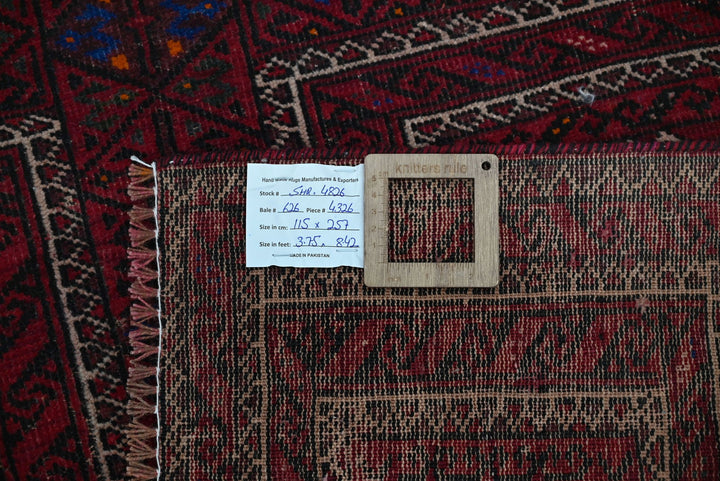 Hand Made Rugs Manufactures & Exporters
Stock # SHR. 4826
Bale # 626 Piece # 4326
Size in cm: 115 x 257
Size in feet: 3.75 x 8.42
MADE IN PAKISTAN
knitters mile
5 cm
4
3
2
1